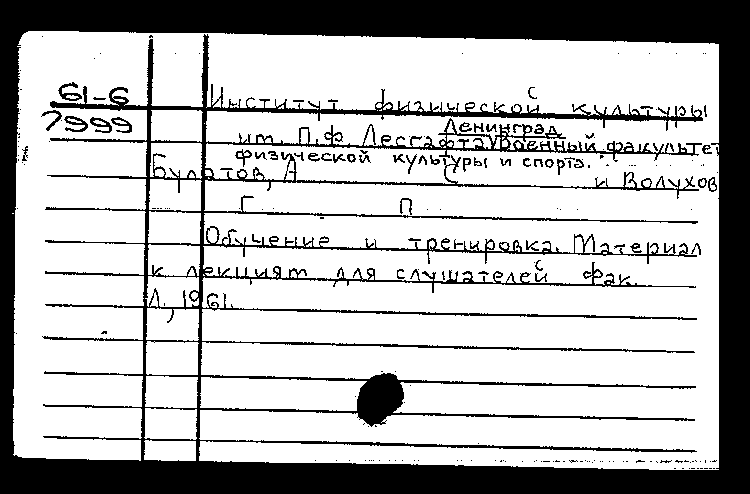 61-6
7999
Институт физической культуры
Ленинград
им. П.Ф. Лесгафта Военный факультет
физической культуры и спорта.
Булатов, А С и Волухов
Г П
Обучение и тренировка. Материал
к лекциям для слушателей фак.
Л., 1961.